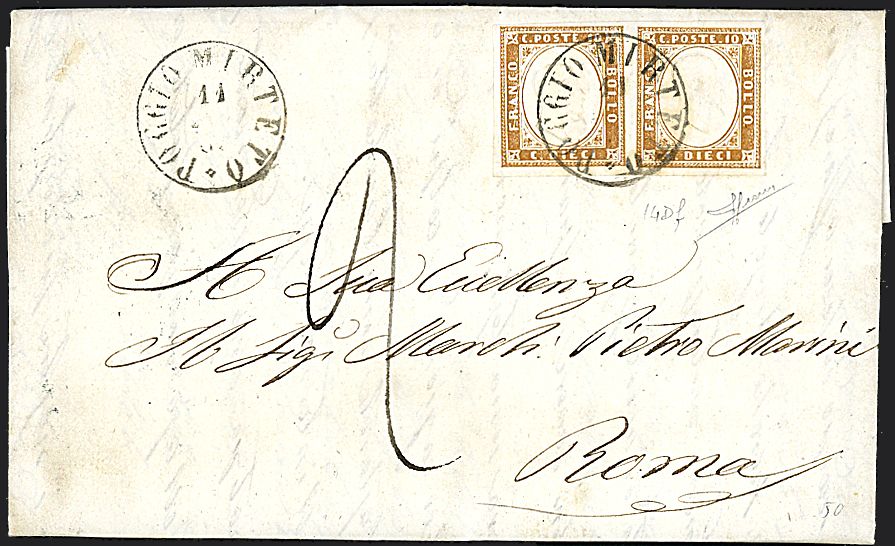 POGGIO MIRTETO
11
C. POSTE. 10
FRANCO
BOLLO
C. DIECI
C. POSTE. 10
FRANCO
BOLLO
C. DIECI
POGGIO MIRTETO
14Df
2
A Sua Eccellenza
Il Sigr March: Pietro Marini
Roma
50